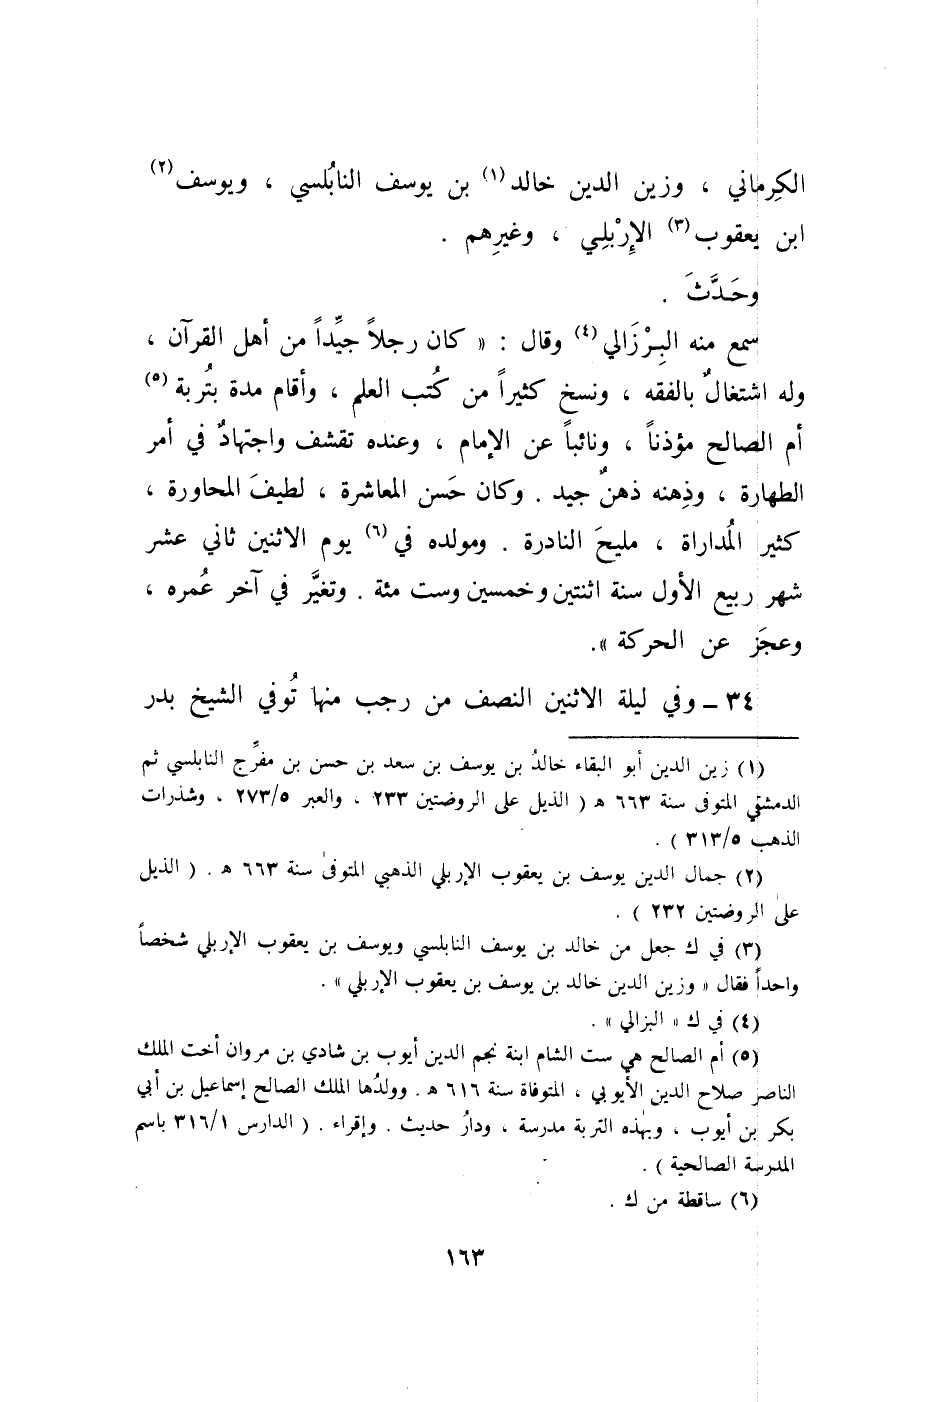 الكِرماني ، وزين الدين خالد(١) بن يوسف النابُلسي ، ويوسف(٢)
ابن يعقوب(٣) الإِرْبلِي ، وغيرِهم .
وحَدَّثَ .
سمع منه البِرْزَالي(٤) وقال : « كان رجلاً جيِّداً من أهل القرآن ،
وله اشتغالٌ بالفقه ، ونسخ كثيراً من كُتب العلم ، وأقام مدة بتُربة(٥)
أم الصالح مؤذناً ، ونائباً عن الإمام ، وعنده تقشف واجتهادٌ في أمر
الطهارة ، وذِهنه ذهنٌ جيد . وكان حَسن المعاشرة ، لطيفَ المحاورة ،
كثير المُداراة ، مليحَ النادرة . ومولده في(٦) يوم الاثنين ثاني عشر
شهر ربيع الأول سنة اثنتين وخمسين وست مئة . وتغيَّر في آخر عُمره ،
وعجَز عن الحركة ».
٣٤ ـ وفي ليلة الاثنين النصف من رجب منها تُوفي الشيخ بدر
(١) زين الدين أبو البقاء خالدُ بن يوسف بن سعد بن حسن بن مفرِّج النابلسي ثم
الدمشقي المتوفى سنة ٦٦٣ هـ ( الذيل على الروضتين ٢٣٣ ، والعبر ٢٧٣/٥ ، وشذرات
الذهب ٣١٣/٥ ) .
(٢) جمال الدين يوسف بن يعقوب الإربلي الذهبي المتوفىٰ سنة ٦٦٣ هـ . ( الذيل
علىٰ الروضتين ٢٣٢ ) .
(٣) في ك جعل من خالد بن يوسف النابلسي ويوسف بن يعقوب الإربلي شخصاً
واحداً فقال « وزين الدين خالد بن يوسف بن يعقوب الإربلي » .
(٤) في ك « البزالي » .
(٥) أم الصالح هي ست الشام ابنة نجم الدين أيوب بن شادي بن مروان أخت الملك
الناصر صلاح الدين الأيوبي ، المتوفاة سنة ٦١٦ هـ . وولدُها الملك الصالح إسماعيل بن أبي
بكر بن أيوب ، وبهٰذه التربة مدرسة ، ودارُ حديث . وإقراء . ( الدارس ٣١٦/١ باسم
المدرسة الصالحية ) .
(٦) ساقطة من ك .
١٦٣